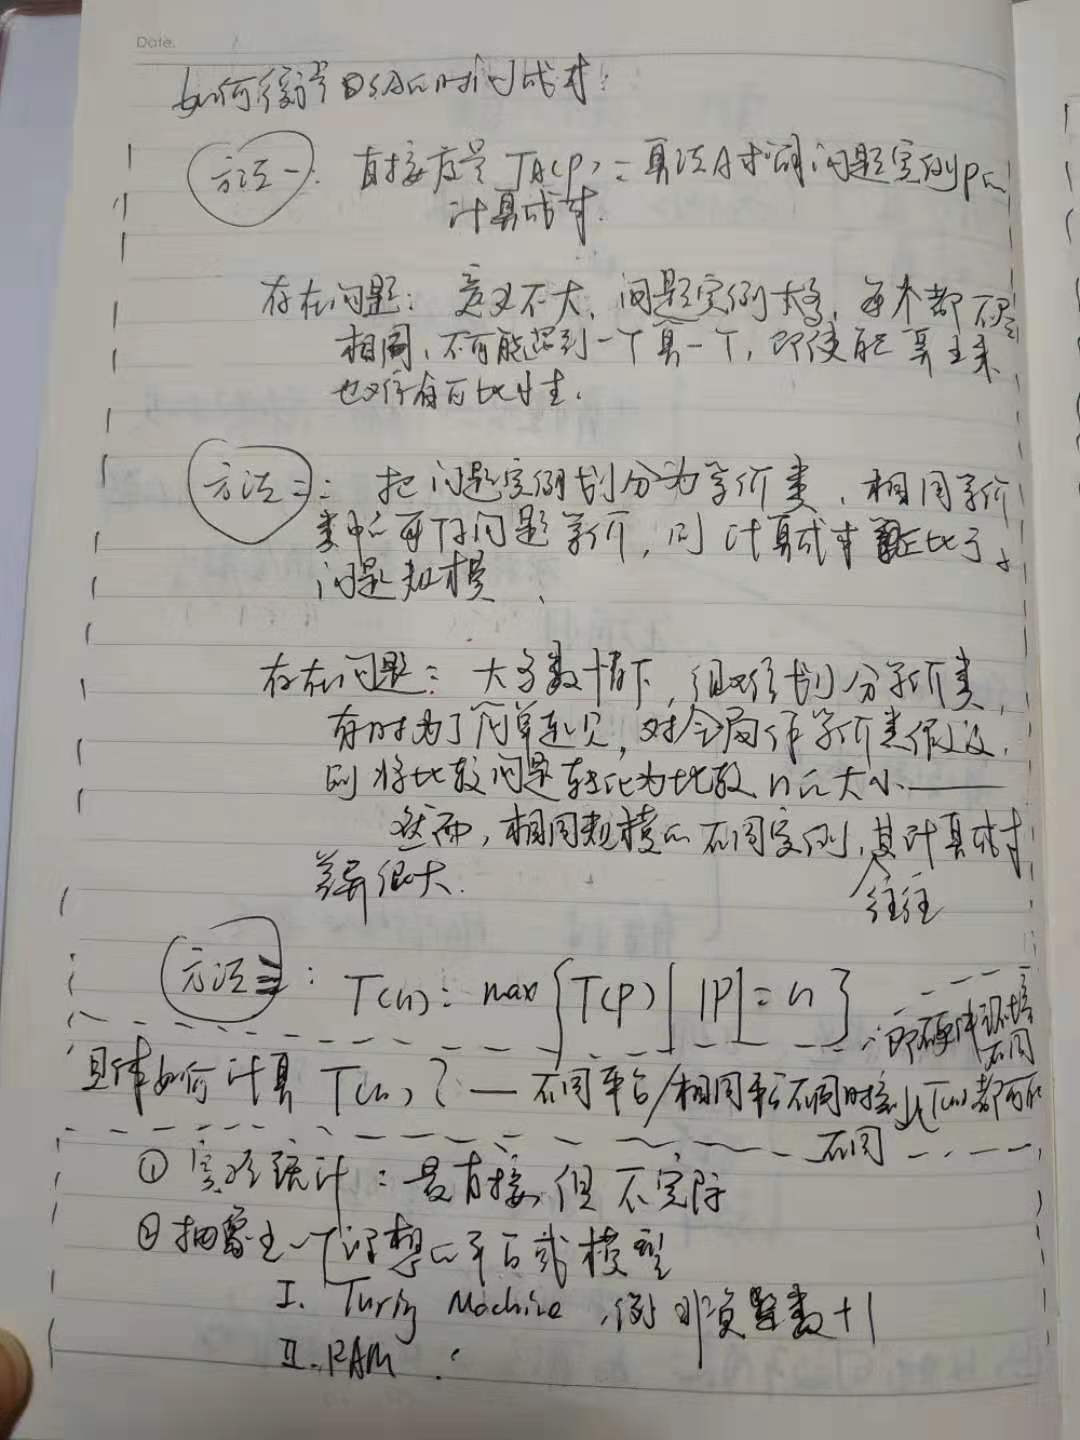 Date.
如何衡量DSA的时间成本:
方法一: 直接度量 TA(P) = 算法A求解问题实例P的
计算成本.
存在问题: 意义不大, 问题实例太多, 每个都不尽
相同, 不可能遇到一个算一个, 即使能算出来
也没有可比性.
方法二: 把问题实例划分为等价类, 相同等价
类中的所有问题等价, 则计算成本正比于
问题规模.
存在问题: 大多数情况下, 很难划分等价类,
有时为了简单起见, 对全局作等价类假设,
则将比较问题转化为比较n的大小 ——
然而, 相同规模的不同实例, 其计算成本
往往
差异很大.
方法三: T(n) = max { T(P) | |P| = n }
即硬件环境
不同
具体如何计算 T(n)? — 不同平台/相同平台不同时刻T(n)都可能
不同
① 实验统计: 最直接, 但不实际
② 抽象出一个理想的平台或模型
I. Turing Machine, 例 非负整数+1
II. RAM :